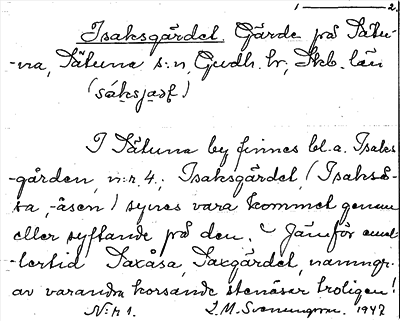 1 — 2.
Isaksgärdet Gärde på Sätu-
-na, Sätuna s:n, Gudh. hr, Skb. län
(sáksjaḍ)
I Sätuna by finnes bl.a. Isaks
-gården, n:r 4; Isaksgärdet (Isakså-
sa, -åsen) synes vara kommet genom
eller syftande på den. – Jämför emel-
lertid Saxåsa, Saxgärdet, namngr.
av varandra korsande stenåsar troligen!
N:r 1. L.M. Svenungsson. 1947